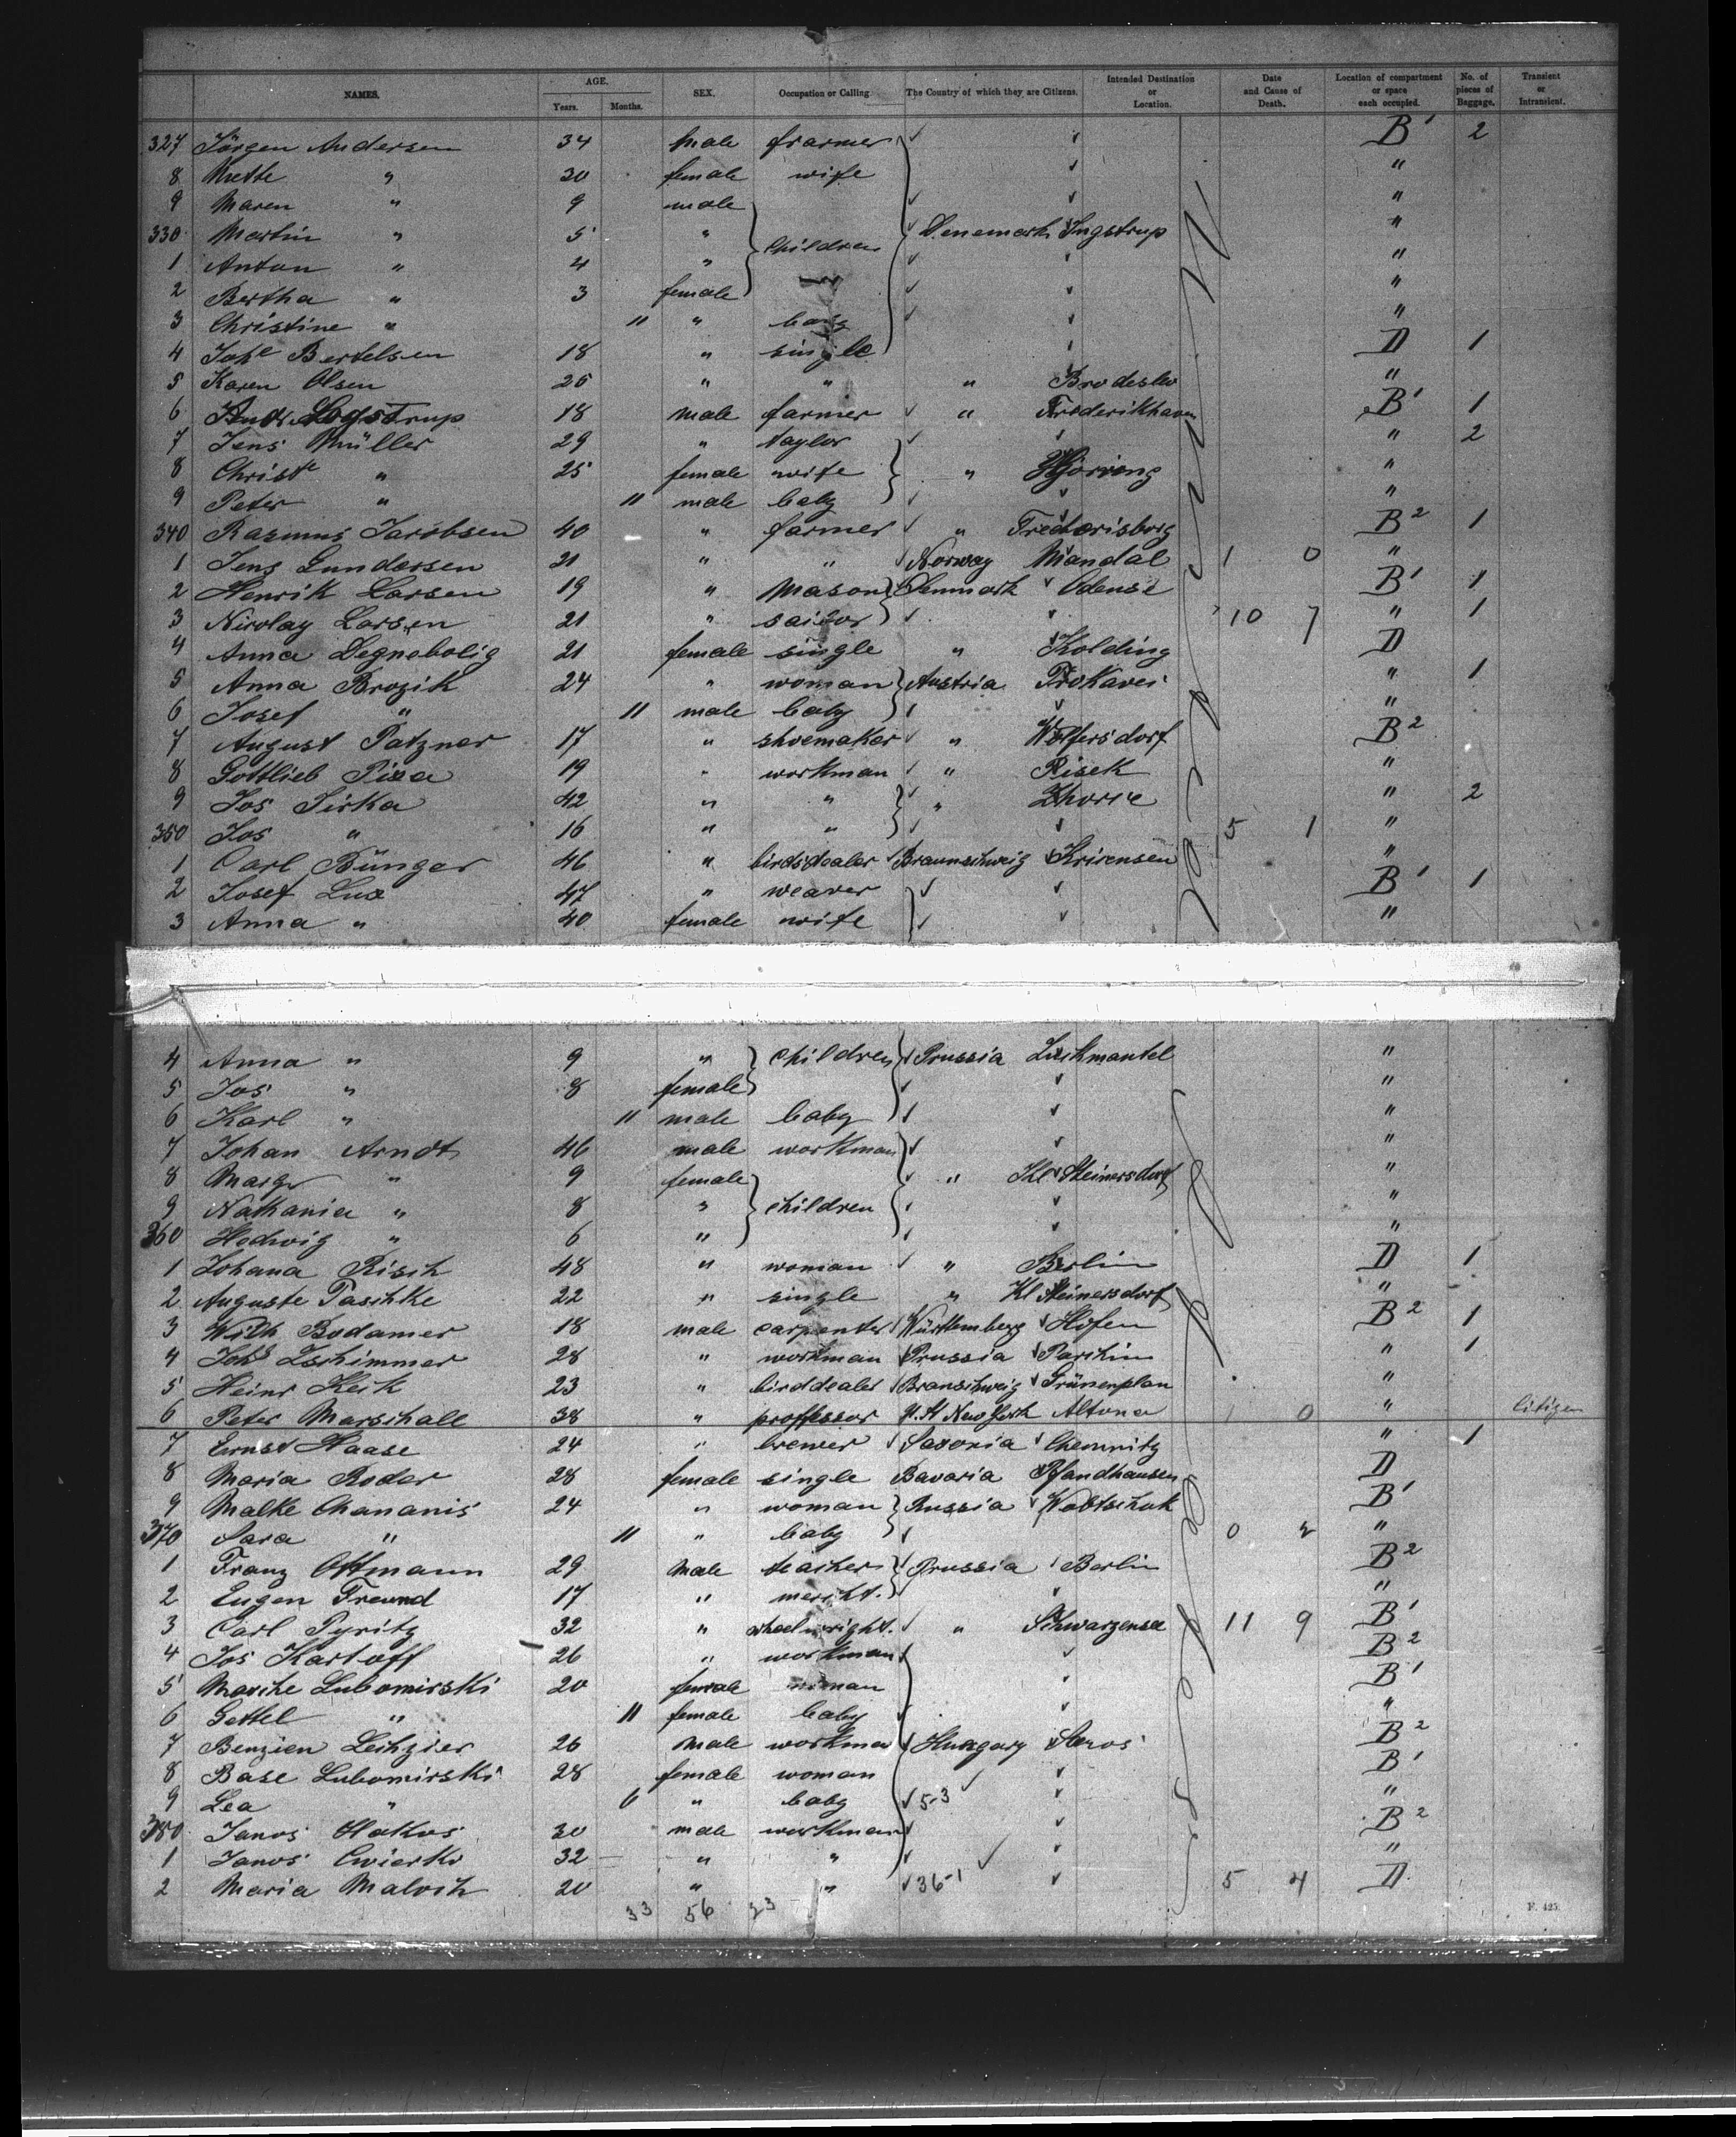 NAMES. AGE. Years. Months. SEX. Occupation or Calling The Country of which they are Citizens. Intended Destination or Location. Date and Cause of Death. Location of compartment or space each occupied. No. of pieces of Baggage. Transient or Intransient.
327 Jörgen Andersen 34 male frarmer B1 2
8 Mette " 30 female wife "
9 Maren " 9 male "
330 Martin " 5 " Children Denemark Ingstrup "
1 Anton " 4 " "
2 Bertha " 3 female "
3 Christine " 11 " baby "
4 Johe Bertelsen 18 " single D 1
5 Karen Olsen 25 " " " Brodeslev "
6 Logstrup 18 male farmer " Frederikhaven B1 1
7 Jens Müller 29 " taylor " 2
8 Christe " 25 female wife " Hjörring "
9 Peter " 11 male baby "
340 Rasmus Jacobsen 40 " farmer " Frederisborg B2 1
1 Jens Gundersen 21 " " Norway Mandal 1 0 "
2 Henrik Larsen 19 " Mason Denmark Odense B1 1
3 Nicolay Larsen 21 " sailor 10 7 " 1
4 Anna Degnebolig 21 female single " Kolding D
5 Anna Brozik 24 " woman Austria Trokavec " 1
6 Josef " 11 male baby "
7 August Patzner 17 " shoemaker " Wolfersdorf B2
8 Gottlieb Pixa 19 " workman " Pisek "
9 Jos Sirka 42 " " " Zhorie " 2
350 Jos " 16 " " 5 1 "
1 Carl Bünger 46 " birdsdealer Braunschweig Kriensen "
2 Josef Lux 47 " weaver B1 1
3 Anna " 40 female wife "
4 Anna " 9 " children Prussia Lischmantel "
5 Jos " 8 female "
6 Karl " 11 male baby "
7 Johan Arndt 46 male workman "
8 Margr " 9 female " Kl Steinersdorf "
9 Nathania " 8 " children "
360 Hedwig " 6 " "
1 Johana Risch 48 " woman " Berlin D 1
2 Auguste Taschke 22 " single " Kl Steinersdorf "
3 Wilh Bodamer 18 male carpenter Württemberg Höfen B2 1
4 Johs Zschimmer 28 " workman Prussia Parchim " 1
5 Heinr Keik 23 " birddealer Branschweig Grünenplan "
6 Peter Marschall 38 " proffessor U. St New York Altona 1 0 " citizen
7 Ernst Haase 24 " brewer Saxonia Chemnitz " 1
8 Maria Roder 28 female single Bavaria Pfandhausen D
9 Malke Chananis 24 " woman Russia B1
370 Sara " 11 " baby 0 2 "
1 Franz Ottmann 29 male teacher Prussia Berlin B2
2 Eugen Freund 17 " mercht. "
3 Carl Pyritz 32 " wheelwright. " Schwarzensee 11 9 B1
4 Jos Kartoff 26 " workman B2
5 Masche Lubomirski 20 female woman B1
6 Gettel " 11 female baby "
7 Benzien Leihzier 26 male workman Hungary Saros B2
8 Base Lubomirski 28 female woman B1
9 Lea " 6 " baby 5-3 "
380 Janos Hakos 30 male workman B2
1 Janos Cwierko 32 " " "
2 Maria Malosch 20 " " 36-1 5 4 D
33 56 23
F. 425.